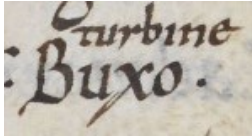 turbine
: Buxo.